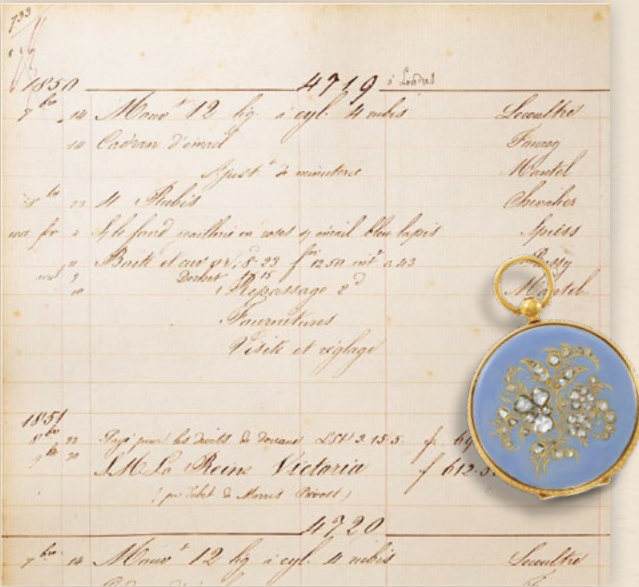 733
1850 4719 à Londres
7bre 14 Mouvt 12 lig. à cyl. 4 rubis Lecoultre
14 Cadran d'émail
Ajustt de minuterie Mautel
8bre 23 4 Rubis Chevalier
4 le fond joaillerie en roses et émail bleu lapis Spiess
11 Boite et cuv. or, 8.23 for 12.50 nett a 43
9 Dorure 15.15
10 Repassage 2d Mautel
Fournitures
Visite et réglage
1851
8bre 22 Payé pour les droits de douane LSt 3.15.5. f.
9bre 20 S.M. La Reine Victoria f 612.5
4720
7bre 14 Mouvt 12 lig. à cyl. 4 rubis Lecoultre